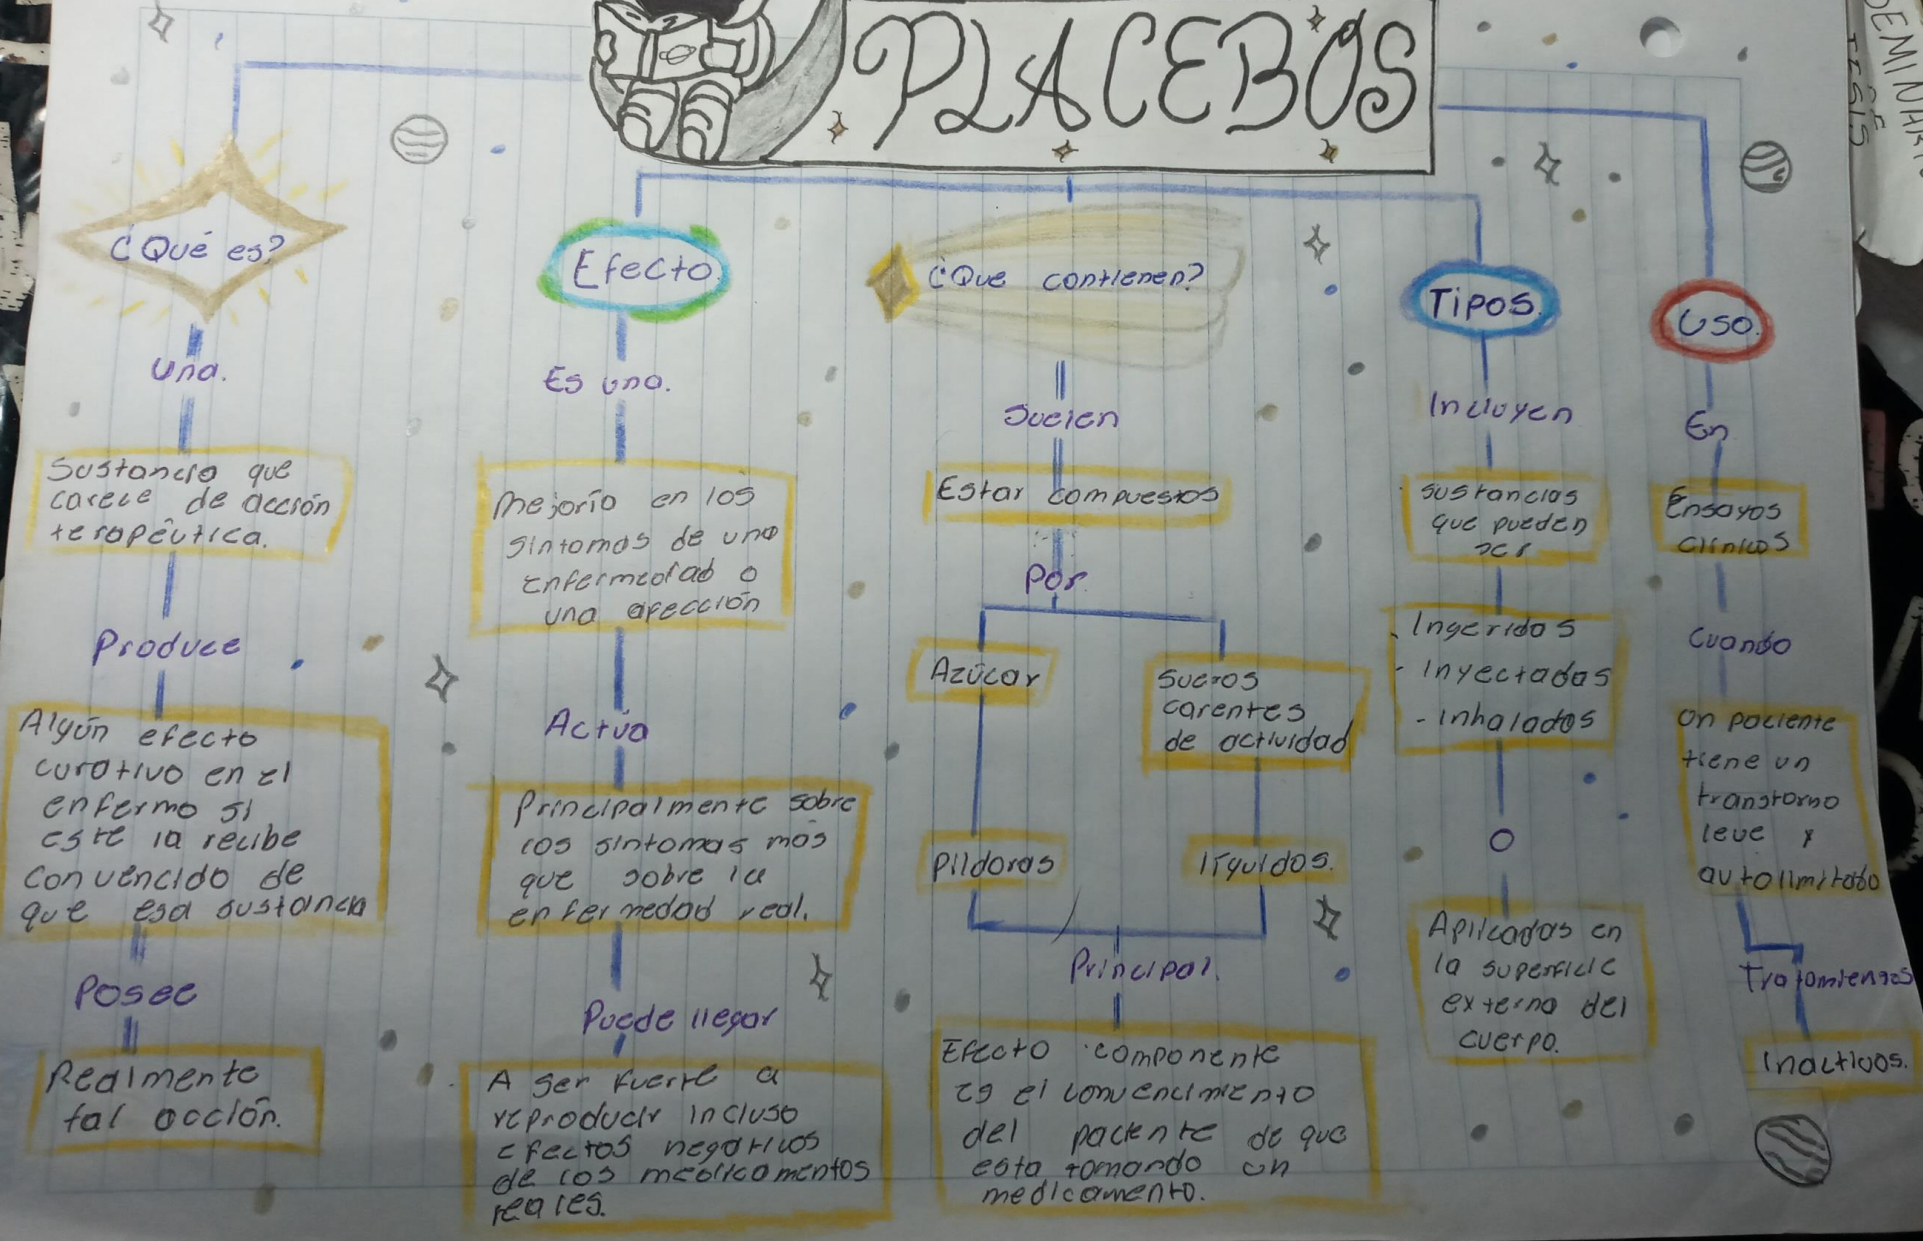 PLACEBOS
¿Qué es?
Una.
Sustancia que
carece de acción
terapéutica.
Produce
Algún efecto
curativo en el
enfermo si
este la recibe
convencido de
que esa sustancia
Posee
Realmente
tal acción.
Efecto.
Es una.
Mejoría en los
síntomas de una
enfermedad o
una afección
Actúa
Principalmente sobre
los síntomas más
que sobre la
enfermedad real.
Puede llegar
A ser fuerte a
reproducir incluso
efectos negativos
de los medicamentos
reales.
¿Que contienen?
Suelen
Estar compuestos
Por
Azúcar
Píldoras
Sueros
carentes
de actividad
líquidos.
Principal.
Efecto componente
es el convencimiento
del paciente de que
esta tomando un
medicamento.
Tipos.
Incluyen
sustancias
que pueden
ser
- Ingeridos
- Inyectadas
- Inhalados
o
Aplicadas en
la superficie
externa del
cuerpo.
Uso.
En
Ensayos
clínicos
Cuando
Un paciente
tiene un
transtorno
leve y
autolimitado
Tratamientos
Inactivos.
SEMINARI
DE
TESIS